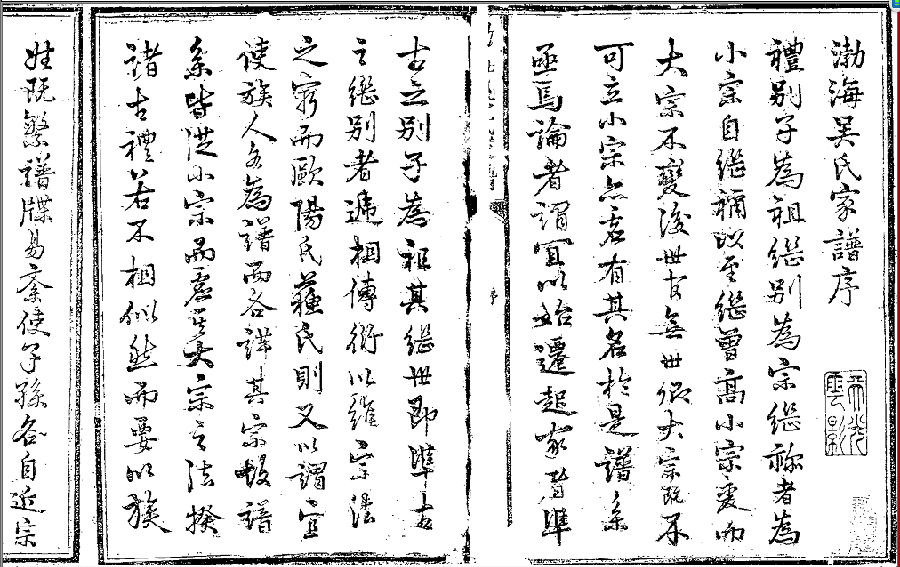 渤海吳氏家譜序
天光雲影
禮別子為祖繼別為宗繼祢者為
小宗自繼禰以至繼曾高小宗變而
大宗不變後世有無世卿大宗既不
可立小宗亦有其名於是譜系
亟焉論者謂宜以始遷起家者準
序
古之別子為祖其繼世即準古
之繼別者遞相傳衍以維宗法
之窮而歐陽氏蘇氏則又以謂宜
使族人各為譜而各詳其宗故譜
系皆從小宗而虛其大宗之法揆
諸古禮若不相似然而要以族
姓既繁譜牒易紊使子孫各自近宗